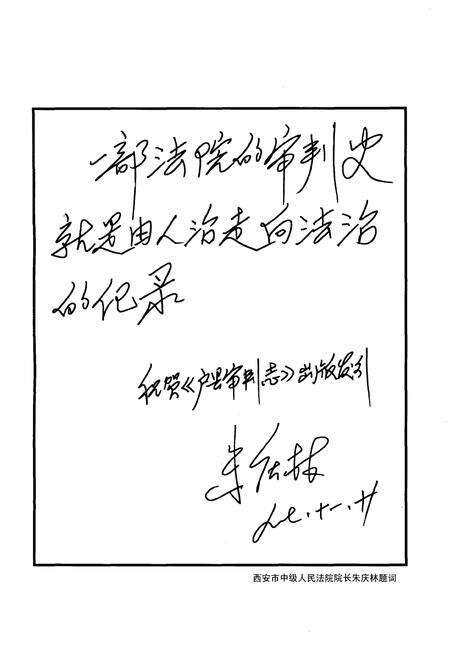 一部法院的审判史
就是由人治走向法治
的纪录
祝贺《户县审判志》出版发行
朱庆林
九七.十一.廿
西安市中级人民法院院长朱庆林题词